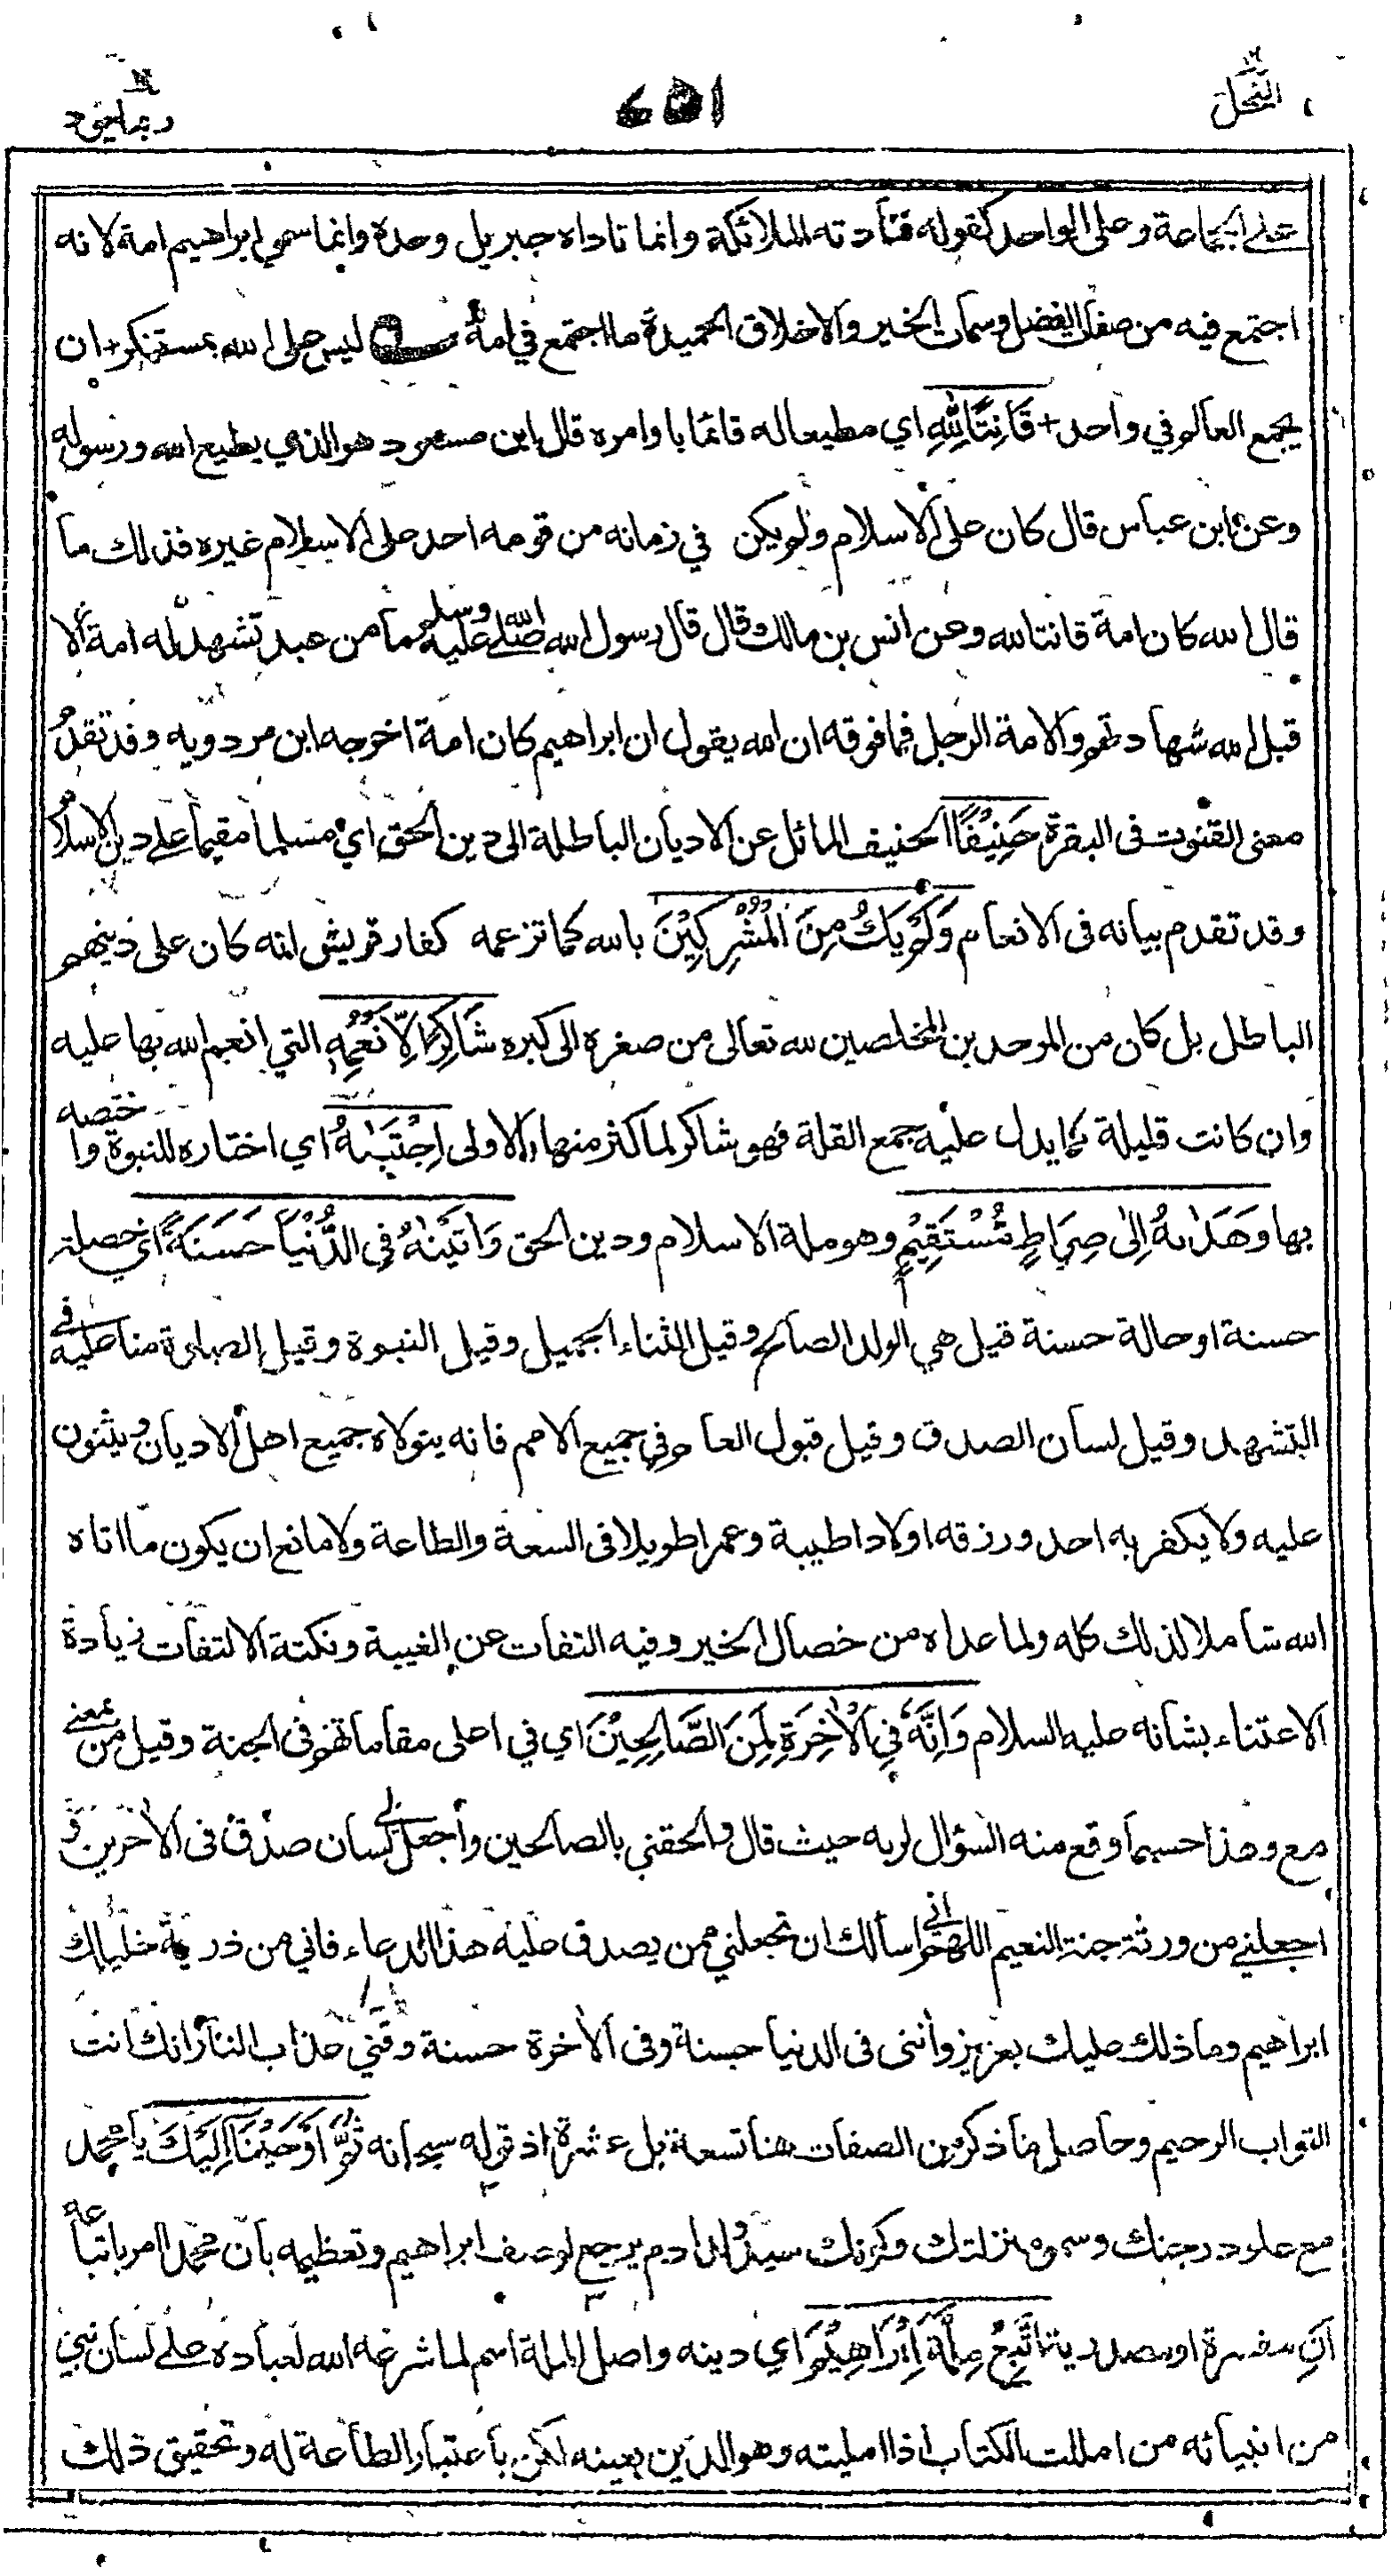 النحل
١٦
ربما
١٤
على الجماعة وعلى الواحد كقوله فنادته الملائكة وانما ناداه جبريل وحده وانما سمي ابراهيم امة لانه
اجتمع فيه من صفات الفضل وسمات الخير والاخلاق الحميدة ما اجتمع في امة ليس على الله بمستنكر+ ان
يجمع العالم في واحد+ قَانِتًا لِلّٰهِ اي مطيعا له قائما باوامره قال ابن مسعود هو الذي يطيع الله ورسوله
وعن ابن عباس قال كان على الاسلام ولم يكن في زمانه من قومه احد على الاسلام غيره فذلك ما
قال الله كان امة قانتا لله وعن انس بن مالك وقال قال رسول الله صلى الله عليه وسلم ما من عبد تشهد له امة الا
قبل الله شهادتهم والامة الرجل فما فوقه ان الله يقول ان ابراهيم كان امة اخرجه ابن مردويه وقد تقدم
معنى القنوت فى البقرة حَنِيْفًا الحنيف المائل عن الاديان الباطلة الى دين الحق اي مسلما مقيما على دين الاسلام
وقد تقدم بيانه فى الانعام وَلَمْ يَكُ مِنَ الْمُشْرِكِيْنَ بالله كما تزعمه كفار قريش انه كان على دينهم
الباطل بل كان من الموحدين المخلصين لله تعالى من صغره الى كبره شَاكِرًا لِّاَنْعُمِهِ التي انعم الله بها عليه
وان كانت قليلة كما يدل عليه جمع القلة فهو شاكر لما كثر منها بالاولى اِجْتَبٰىهُ اي اختاره للنبوة واختصه
بها وَهَدٰىهُ اِلٰى صِرَاطٍ مُّسْتَقِيْمٍ وهو ملة الاسلام ودين الحق وَاٰتَيْنٰهُ فِى الدُّنْيَا حَسَنَةً اي خصلة
حسنة او حالة حسنة قيل هي الولد الصالح وقيل الثناء الجميل وقيل النبوة وقيل الصلوة منا عليه في
التشهد وقيل لسان الصدق وقيل قبول العام في جميع الامم فانه يتولاه جميع اهل الاديان ويثنون
عليه ولا يكفر به احد ورزقه اولادا طيبة وعمرا طويلا فى السعة والطاعة ولا مانع ان يكون ما اتاه
الله شاملا لذلك كله ولما عداه من خصال الخير وفيه التفات عن الغيبة ونكتة الالتفات زيادة
الاعتناء بشانه عليه السلام وَاِنَّهٗ فِى الْاٰخِرَةِ لَمِنَ الصَّالِحِيْنَ اي في اعلى مقاماتهم فى الجنة وقيل من بمعنى
مع وهذا حسبما وقع منه السؤال لربه حيث قال والحقني بالصالحين واجعل لي لسان صدق فى الاخرين و
اجعلني من ورثة جنة النعيم اللهم اني اسالك ان تجعلني ممن يصدق عليه هذا الدعاء فاني من ذرية خليلك
ابراهيم وما ذلك عليك بعزيز واٰتنى فى الدنيا حسنة وفى الاخرة حسنة وقني عذاب النار انك انت
التواب الرحيم وحاصل ما ذكر من الصفات هنا تسعة بل عشرة اذ قوله سبحانه ثُمَّ اَوْحَيْنَا اِلَيْكَ يا محمد
مع علو درجتك وسمو منزلتك وكونك سيد ولد ادم يرجع لوصف ابراهيم وتعظيمه بان محمدا امر باتباعه
اَنِ مفسرة او مصدرية اتَّبِعْ مِلَّةَ اِبْرَاهِيْمَ اي دينه واصل الملة اسم لما شرعه الله لعباده على لسان نبي
من انبيائه من امللت الكتاب اذا امليته وهو الدين بعينه لكن باعتبار الطاعة له وتحقيق ذلك